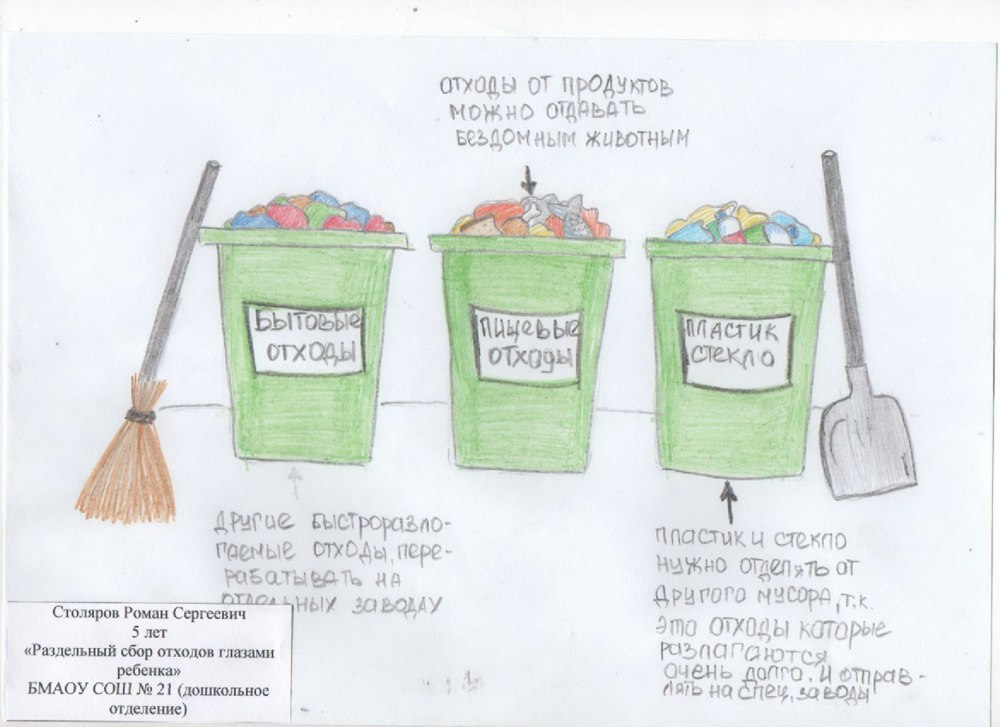 ОТХОДЫ ОТ ПРОДУКТОВ
МОЖНО ОТДАВАТЬ
БЕЗДОМНЫМ ЖИВОТНЫМ
БЫТОВЫЕ
ОТХОДЫ
ПИЩЕВЫЕ
ОТХОДЫ
ПЛАСТИК
СТЕКЛО
ДРУГИЕ БЫСТРОРАЗЛО-
ГАЕМЫЕ ОТХОДЫ, ПЕРЕ-
РАБАТЫВАТЬ НА
ОТДЕЛЬНЫХ ЗАВОДАХ
ПЛАСТИК И СТЕКЛО
НУЖНО ОТДЕЛЯТЬ ОТ
ДРУГОГО МУСОРА, Т.К.
ЭТО ОТХОДЫ КОТОРЫЕ
РАЗЛАГАЮТСЯ
ОЧЕНЬ ДОЛГО. И ОТПРАВ-
ЛЯТЬ НА СПЕЦ, ЗАВОДЫ
Столяров Роман Сергеевич
5 лет
«Раздельный сбор отходов глазами
ребенка»
БМАОУ СОШ № 21 (дошкольное
отделение)